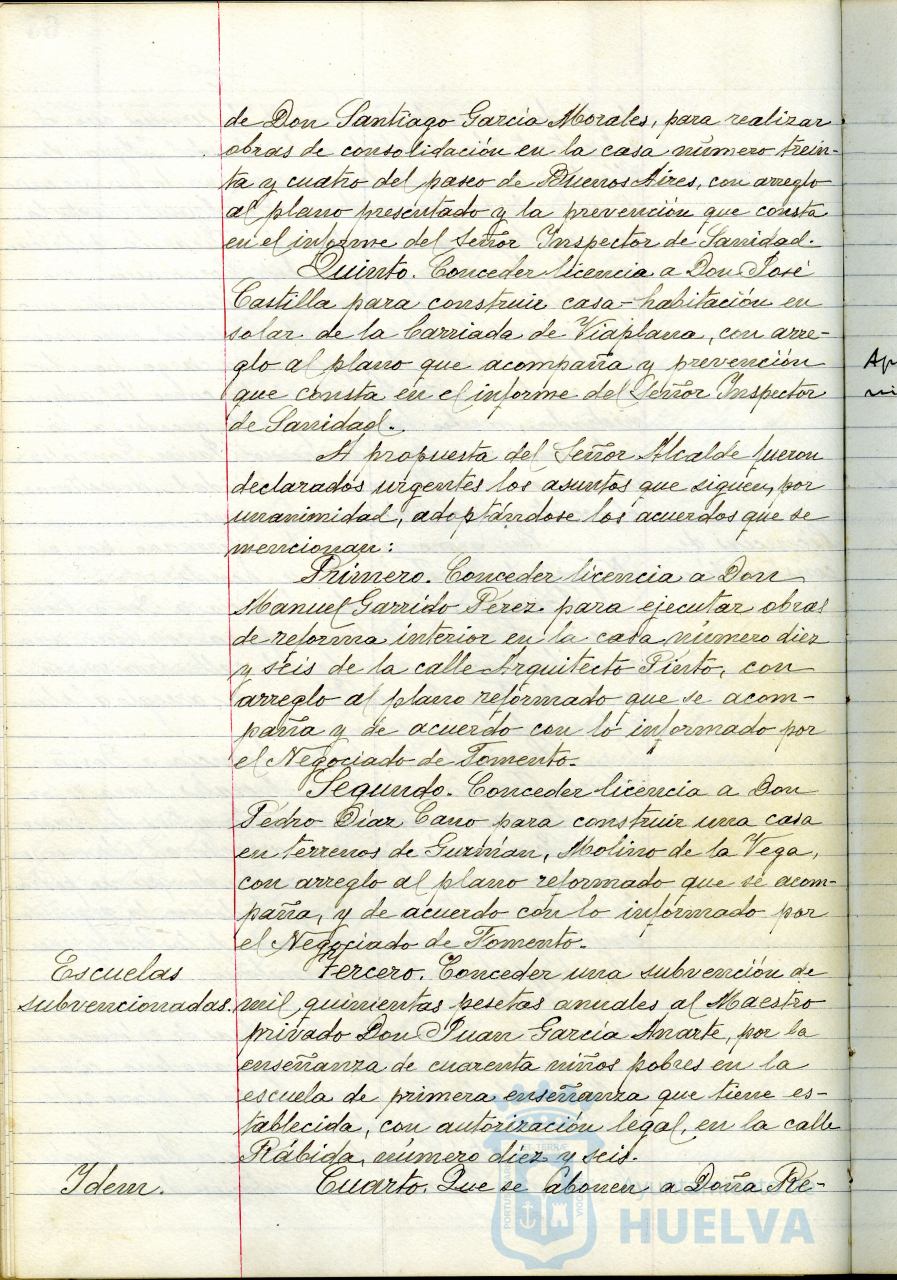 de Don Santiago García Morales, para realizar
obras de consolidación en la casa número trein-
ta y cuatro del paseo de Buenos Aires, con arreglo
al plano presentado y la prevención que consta
en el informe del Señor Inspector de Sanidad.
Quinto. Conceder licencia a Don José
Castilla para construir casa-habitación en
solar de la barriada de Viaplana, con arre-
glo al plano que acompaña y prevención
que consta en el informe del Señor Inspector
de Sanidad.
A propuesta del Señor Alcalde fueron
declarados urgentes los asuntos que siguen, por
unanimidad, adoptándose los acuerdos que se
mencionan:
Primero. Conceder licencia a Don
Manuel Garrido Pérez para ejecutar obras
de reforma interior en la casa número diez
y séis de la calle Arquitecto Pinto, con
arreglo al plano reformado que se acom-
paña y de acuerdo con lo informado por
el Negociado de Fomento.
Segundo. Conceder licencia a Don
Pedro Díaz Cano para construir una casa
en terrenos de Guzmán, Molino de la Vega,
con arreglo al plano reformado que se acom-
paña, y de acuerdo con lo informado por
el Negociado de Fomento.
Escuelas
subvencionadas.
Tercero. Conceder una subvención de
mil quinientas pesetas anuales al Maestro
privado Don Juan García Anarte, por la
enseñanza de cuarenta niños pobres en la
escuela de primera enseñanza que tiene es-
tablecida, con autorización legal, en la calle
Rábida, número diez y seis.
Idem.
Cuarto. Que se abonen a Doña Re-
Ap
ni
HUELVA